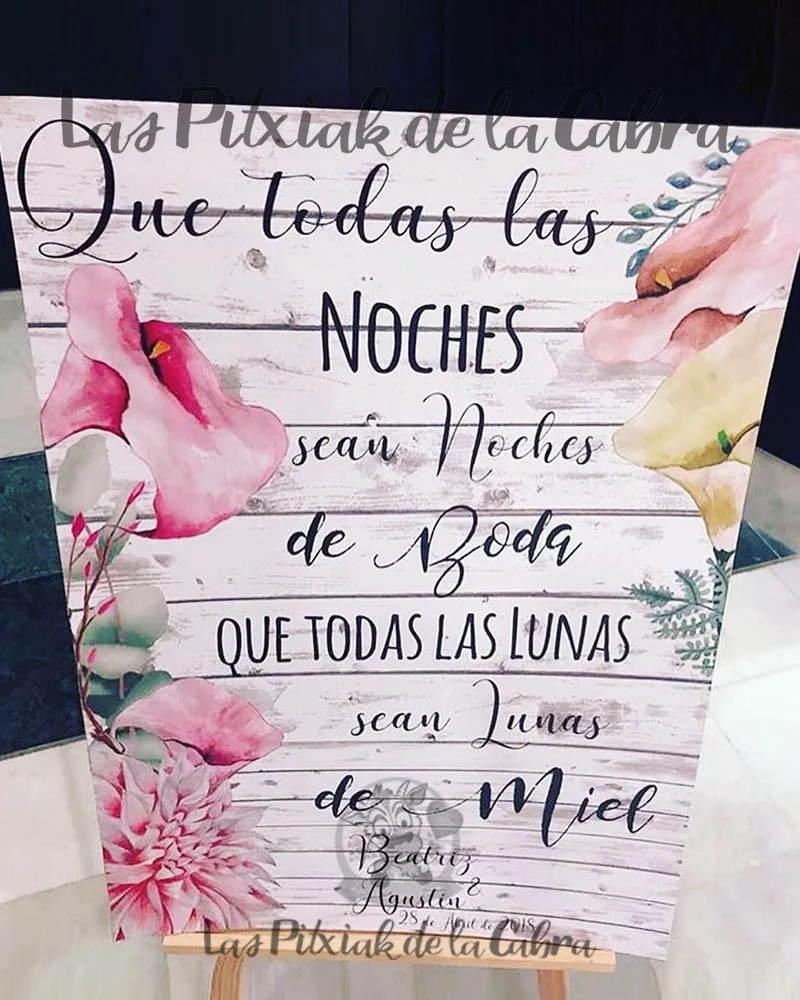 Las Pitxiak de la Cabra
Que todas las
NOCHES
sean Noches
de Boda
QUE TODAS LAS LUNAS
sean Lunas
de Miel
Beatriz
&
Agustin
28 de Abril de 2018
Las Pitxiak de la Cabra